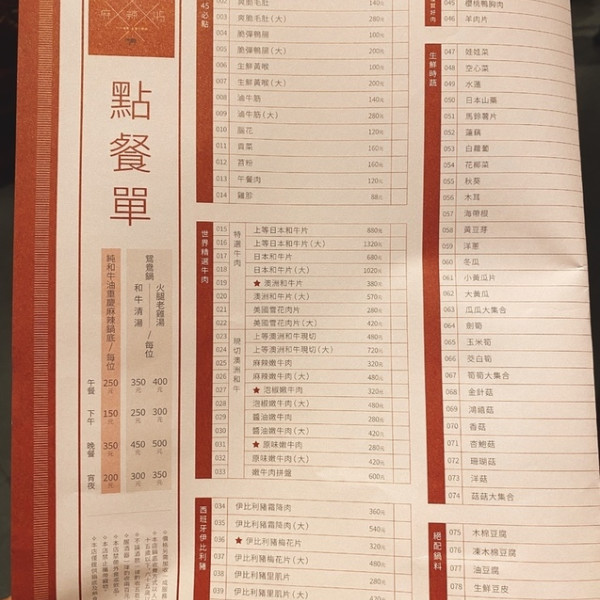 點餐單
純和牛油重慶麻辣鍋底/每位
鴛鴦鍋
和牛清湯
火腿老雞湯
/每位
午餐 250元 350元 400元
下午 150元 250元 300元
晚餐 350元 450元 500元
宵夜 200元 300元 350元
45必點
003 爽脆毛肚(大) 280元
004 脆彈鴨腸 100元
005 脆彈鴨腸(大) 200元
006 生鮮黃喉 100元
007 生鮮黃喉(大) 200元
008 滷牛筋 140元
009 滷牛筋(大) 280元
010 腦花 120元
011 貢菜 160元
012 苕粉 160元
013 午餐肉 120元
014 雞胗 88元
世界精選牛肉
特選牛肉
015 上等日本和牛片 880元
016 上等日本和牛片(大) 1320元
017 日本和牛片 680元
018 日本和牛片(大) 1020元
019 ★澳洲和牛片 380元
020 澳洲和牛片(大) 570元
021 美國雪花肉片 280元
022 美國雪花肉片(大) 420元
現切澳洲和牛
023 上等澳洲和牛現切 480元
024 上等澳洲和牛現切(大) 720元
025 麻辣嫩牛肉 320元
026 麻辣嫩牛肉(大) 480元
027 ★泡椒嫩牛肉 320元
028 泡椒嫩牛肉(大) 480元
029 醬油嫩牛肉 280元
030 醬油嫩牛肉(大) 420元
031 ★原味嫩牛肉 280元
032 原味嫩牛肉(大) 420元
033 嫩牛肉拼盤 600元
西班牙伊比利豬
034 伊比利豬霜降肉 360元
035 伊比利豬霜降肉(大) 540元
036 ★伊比利豬梅花片 320元
037 伊比利豬梅花片(大) 480元
038 伊比利豬里肌片 280元
039 伊比利豬里肌片(大) 420元
045 櫻桃鴨胸肉
046 羊肉片
生鮮時蔬
047 娃娃菜
048 空心菜
049 水蓮
050 日本山藥
051 馬鈴薯片
052 蓮藕
053 白蘿蔔
054 花椰菜
055 秋葵
056 木耳
057 海帶根
058 黃豆芽
059 洋蔥
060 冬瓜
061 小黃瓜片
062 大黃瓜
063 瓜瓜大集合
064 劍筍
065 玉米筍
066 茭白筍
067 筍筍大集合
068 金針菇
069 鴻禧菇
070 香菇
071 杏鮑菇
072 珊瑚菇
073 洋菇
074 菇菇大集合
絕配鍋料
075 木棉豆腐
076 凍木棉豆腐
077 油豆腐
078 生鮮豆皮